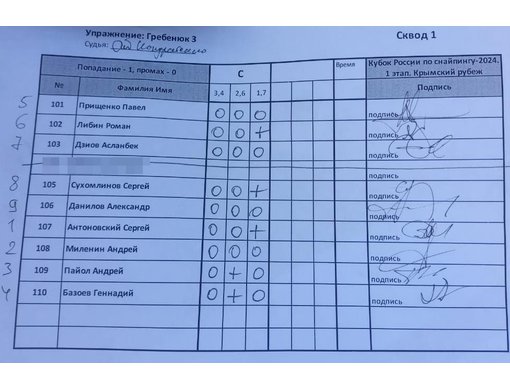 Упражнение: Гребенюк 3
Сквод 1
Судья:
Попадание - 1, промах - 0 С Время Кубок России по снайпингу-2024. 1 этап. Крымский рубеж
№ Фамилия Имя 3,4 2,6 1,7 Подпись
5 101 Прищенко Павел 0 0 0 подпись
6 102 Либин Роман 0 0 + подпись
7 103 Дзиов Асланбек 0 0 0 подпись
подпись
8 105 Сухомлинов Сергей 0 0 + подпись
9 106 Данилов Александр 0 0 0 подпись
1 107 Антоновский Сергей 0 0 + подпись
2 108 Миленин Андрей 0 0 0 подпись
3 109 Пайол Андрей 0 + 0 подпись
4 110 Базоев Геннадий 0 + 0 подпись